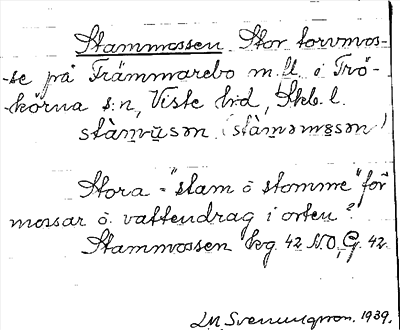 Stammossen. Stor torvmos-
-se på Främmarebo m.fl. i Trö-
körna s:n, Viste hrd, Skb. l.
stàm̥ŭsən (stàməmɷsən)
Stora - "stam o stomme" för
mossar o. vattendrag i orten?
Stammossen kg. 42 N.O, G. 42
LM Svenungsson. 1939.